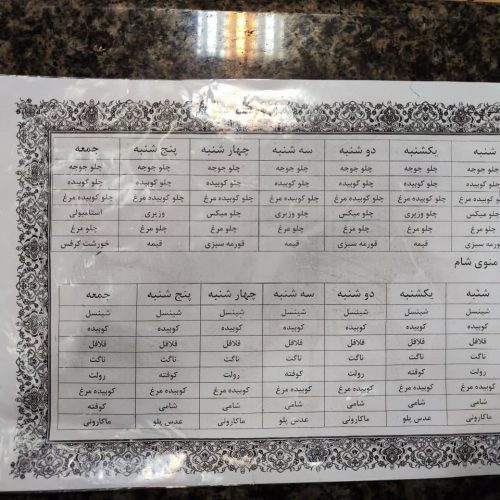 شنبه یکشنبه دو شنبه سه شنبه چهار شنبه پنج شنبه جمعه
چلو جوجه چلو جوجه چلو جوجه چلو جوجه چلو جوجه چلو جوجه چلو جوجه
چلو کوبیده چلو کوبیده چلو کوبیده چلو کوبیده چلو کوبیده چلو کوبیده چلو کوبیده
چلو کوبیده مرغ چلو کوبیده مرغ چلو کوبیده مرغ چلو کوبیده مرغ چلو کوبیده مرغ چلو کوبیده مرغ
چلو وزیری چلو میکس چلو وزیری چلو میکس وزیری استامبولی
چلو مرغ چلو مرغ چلو مرغ چلو مرغ چلو مرغ چلو مرغ چلو مرغ
قیمه قیمه قورمه سبزی قیمه قورمه سبزی قیمه خورشت کرفس
منوی شام
شنبه یکشنبه دو شنبه سه شنبه چهار شنبه پنج شنبه جمعه
شینسل شینسل شینسل شینسل شینسل شینسل شینسل
کوبیده کوبیده کوبیده کوبیده کوبیده کوبیده کوبیده
فلافل فلافل فلافل فلافل فلافل فلافل فلافل
ناگت ناگت ناگت ناگت ناگت ناگت ناگت
رولت کوفته رولت کوفته رولت کوفته رولت
کوبیده مرغ کوبیده مرغ کوبیده مرغ کوبیده مرغ کوبیده مرغ کوبیده مرغ کوبیده مرغ
شامی شامی شامی شامی شامی شامی کوفته
ماکارونی عدس پلو ماکارونی عدس پلو ماکارونی عدس پلو ماکارونی